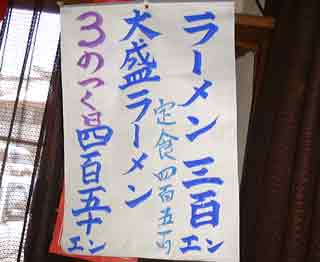 ラーメン 三百エン
定食 四百五十
大盛ラーメン
3のつく日四百五十エン